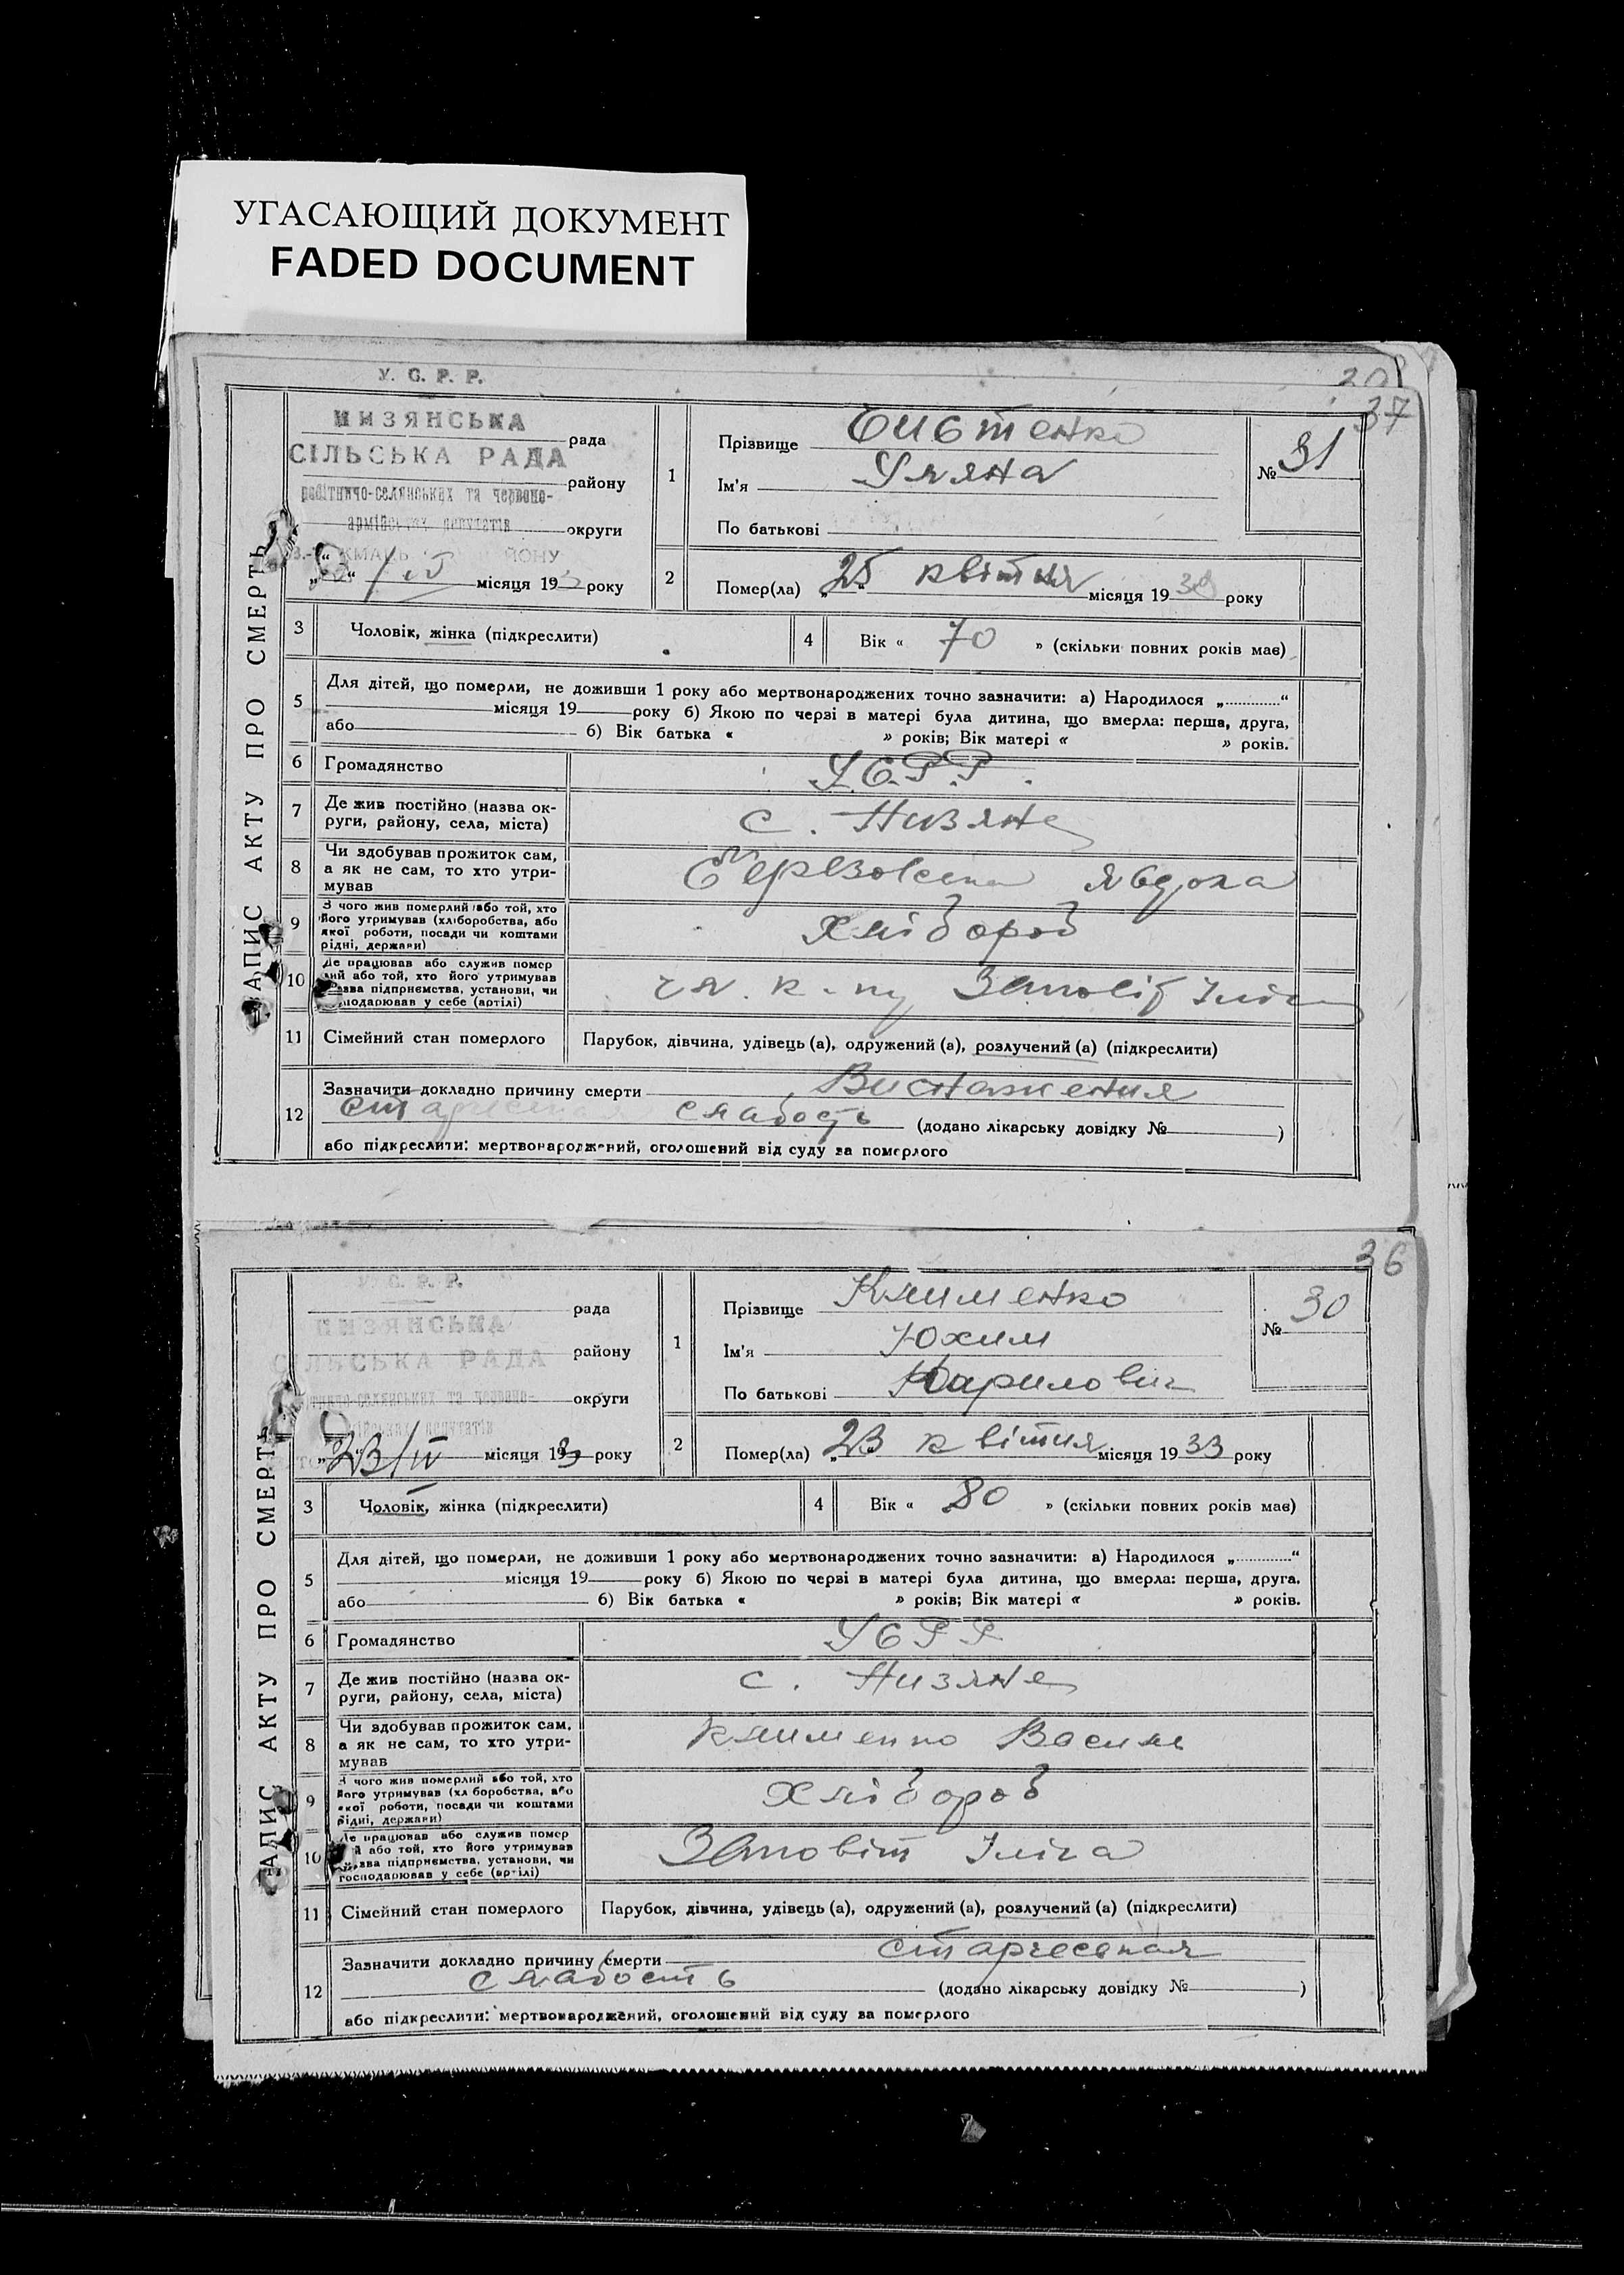 УГАСАЮЩИЙ ДОКУМЕНТ
FADED DOCUMENT
У. С. Р. Р.
37
ЗАПИС АКТУ ПРО СМЕРТЬ
НИЗЯНСЬКА
рада
СІЛЬСЬКА РАДА
району
робітничо-селянських та червоно-
армійських депутатів
округи
місяця 19 року
1
Прізвище
Ім'я Уляна
По батькові
№ 31
2
Помер(ла) „25“ квітня місяця 1933 року
3 Чоловік, жінка (підкреслити)
4 Вік « 70 » (скільки повних років має)
5 Для дітей, що померли, не доживши 1 року або мертвонароджених точно зазначити: а) Народилося „.............“
місяця 19 року б) Якою по черзі в матері була дитина, що вмерла: перша, друга,
або б) Вік батька « » років; Вік матері « » років.
6 Громадянство У.С.Р.Р.
7 Де жив постійно (назва ок-
руги, району, села, міста)
с. Низяне
8 Чи здобував прожиток сам,
а як не сам, то хто утри-
мував
Явдоха
9 З чого жив померлий або той, хто
його утримував (хліборобства, або
якої роботи, посади чи коштами
рідні, держави)
хлібороб
10 Де працював або служив помер
лий або той, хто його утримував
назва підприємства, установи, чи
господарював у себе (артілі)
чл. к-пу Заповіт Іліча
11 Сімейний стан померлого
Парубок, дівчина, удівець (а), одружений (а), розлучений (а) (підкреслити)
12 Зазначити докладно причину смерти Виснаження
старческая слабость (додано лікарську довідку № )
або підкреслити: мертвонароджений, оголошений від суду за померлого
36
ЗАПИС АКТУ ПРО СМЕРТЬ
У. С. Р. Р.
рада
НИЗЯНСЬКА
СІЛЬСЬКА РАДА
району
робітничо-селянських та червоно-
округи
армійських депутатів
„23/IV місяця 1933 року
1
Прізвище Клименко
Ім'я Юхим
По батькові Карилович
№ 30
2
Помер(ла) „23“ квітня місяця 1933 року
3 Чоловік, жінка (підкреслити)
4 Вік « 80 » (скільки повних років має)
5 Для дітей, що померли, не доживши 1 року або мертвонароджених точно зазначити: а) Народилося „.............“
місяця 19 року б) Якою по черзі в матері була дитина, що вмерла: перша, друга.
або б) Вік батька « » років; Вік матері « » років.
6 Громадянство УСРР
7 Де жив постійно (назва ок-
руги, району, села, міста)
с. Низяне
8 Чи здобував прожиток сам,
а як не сам, то хто утри-
мував
Клименко Василь
9 З чого жив померлий або той, хто
його утримував (хліборобства, або
якої роботи, посади чи коштами
рідні, держави)
хлібороб
10 Де працював або служив помер
лий або той, хто його утримував
назва підприємства, установи, чи
господарював у себе (артілі)
Заповіт Іліча
11 Сімейний стан померлого
Парубок, дівчина, удівець (а), одружений (а), розлучений (а) (підкреслити)
12 Зазначити докладно причину смерти старческая
слабость (додано лікарську довідку № )
або підкреслити: мертвонароджений, оголошений від суду за померлого